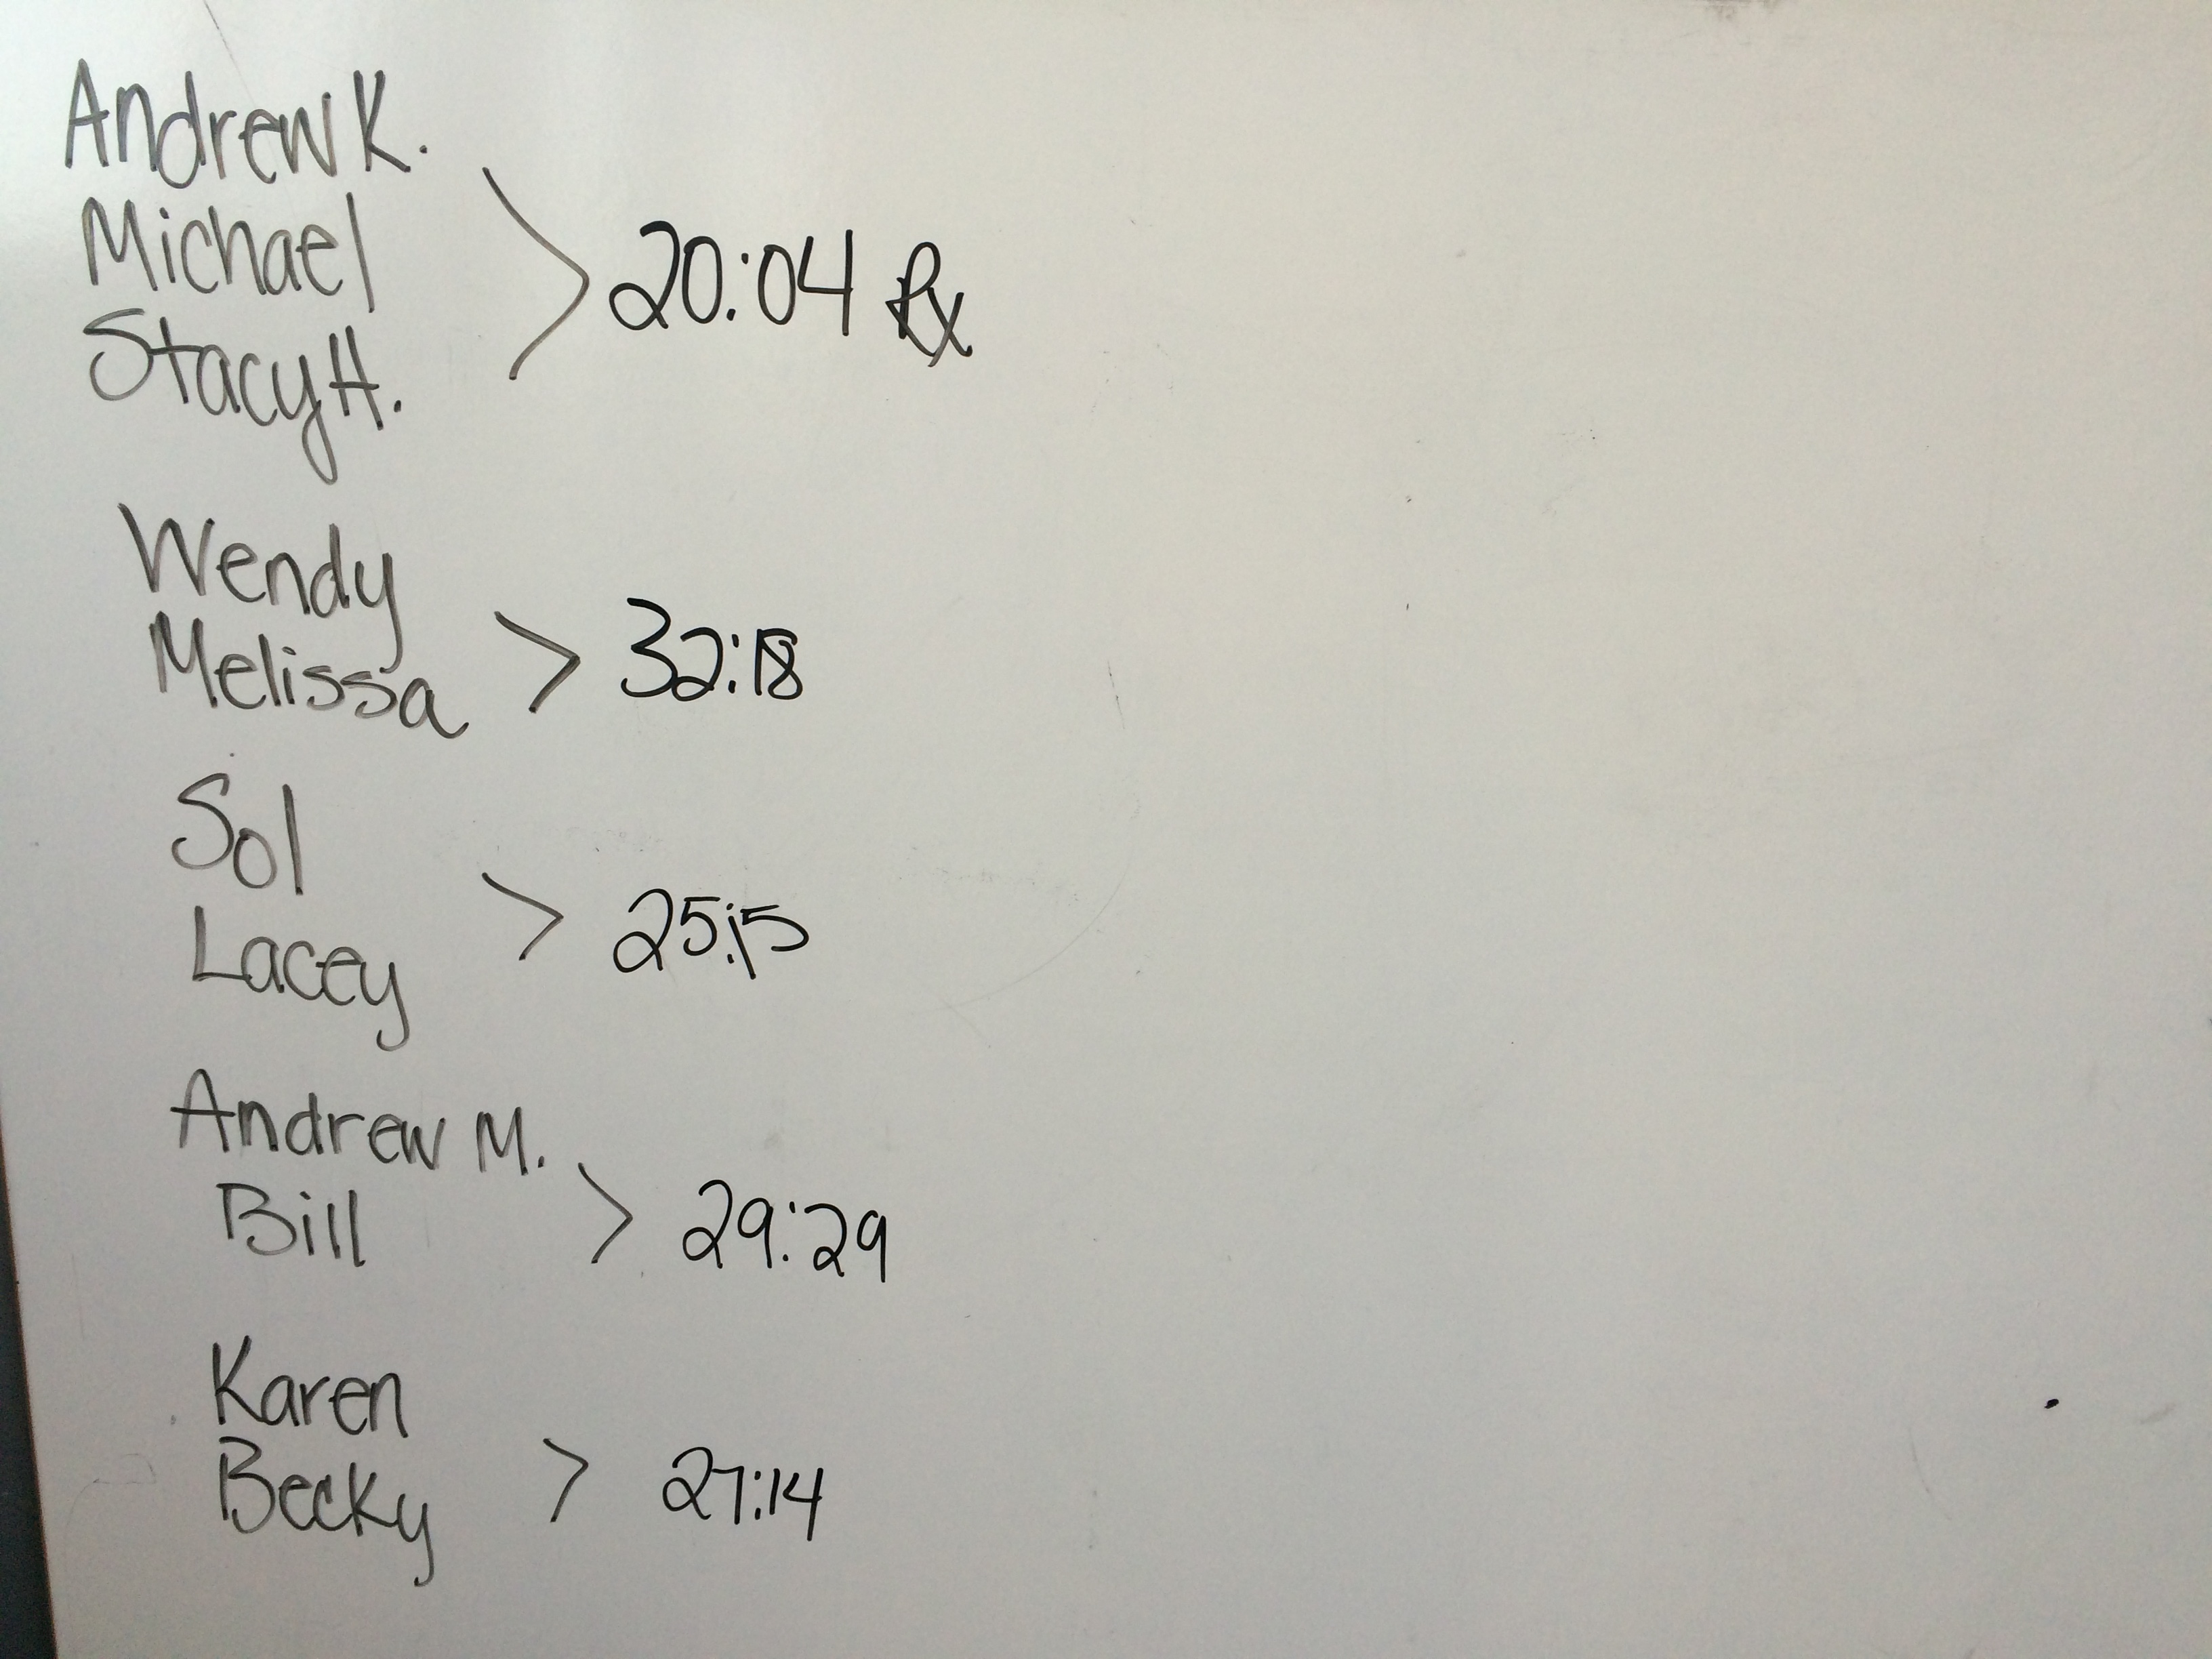 Andrew K.
Michael
Stacy H.
> 20:04 Rx
Wendy
Melissa
> 32:18
Sol
Lacey
> 25:15
Andrew M.
Bill
> 29:29
Karen
Becky
> 27:14